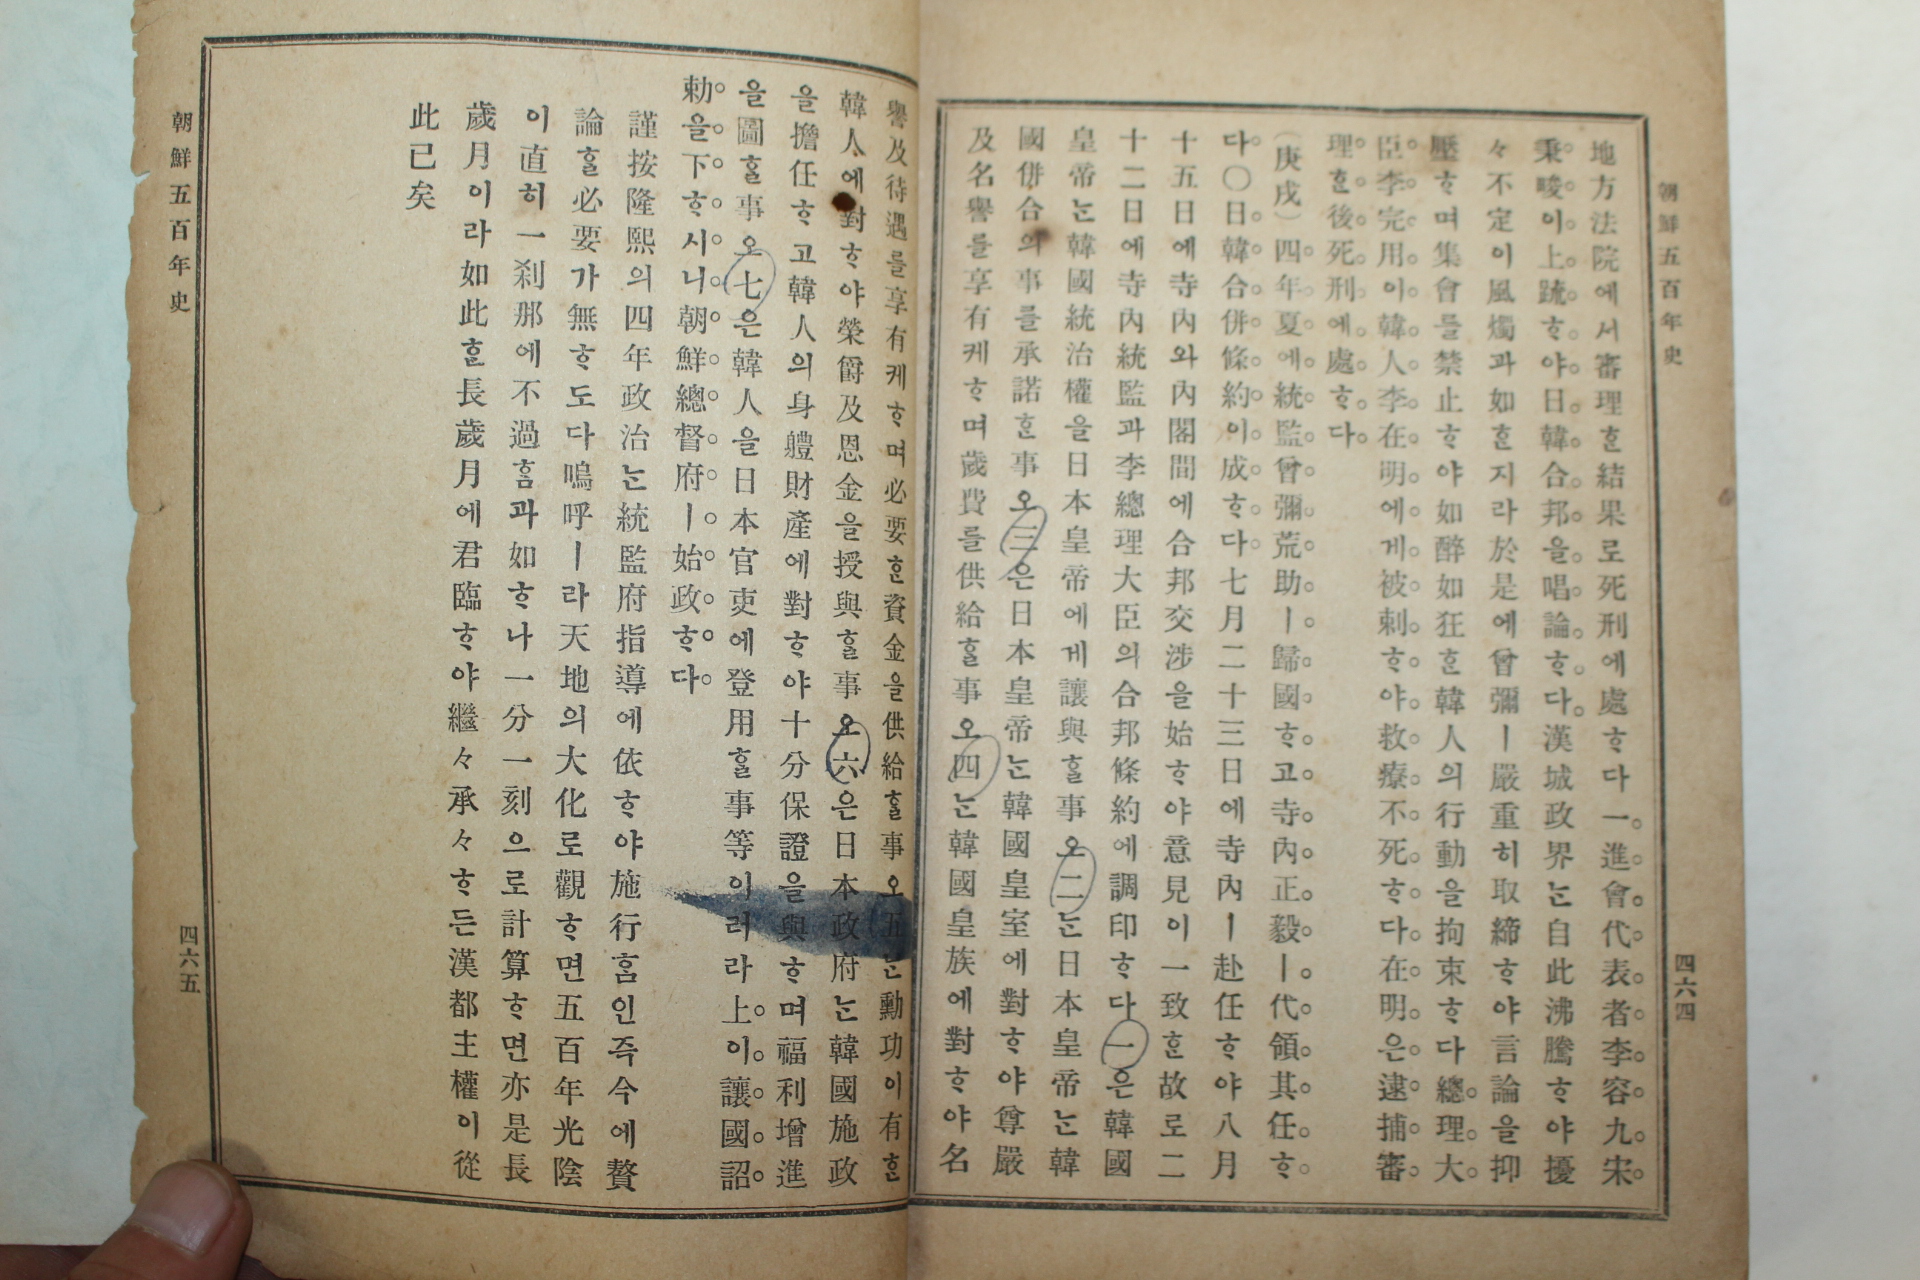 朝鮮五百年史
四六四
地方法院에서審理ᄒᆞᆫ結果로死刑에處ᄒᆞ다一進會代表者李容九宋
秉畯이上䟽ᄒᆞ야日韓合邦을唱論ᄒᆞ다漢城政界는自此沸騰ᄒᆞ야擾
々不定이風燭과如ᄒᆞᆫ지라於是에曾彌ㅣ嚴重히取締ᄒᆞ야言論을抑
壓ᄒᆞ며集會를禁止ᄒᆞ야如醉如狂ᄒᆞᆫ韓人의行動을拘束ᄒᆞ다總理大
臣李完用이韓人李在明에게被刺ᄒᆞ야救療不死ᄒᆞ다在明은逮捕審
理ᄒᆞᆫ後死刑에處ᄒᆞ다
(庚戌)四年夏에統監曾彌荒助ㅣ歸國ᄒᆞ고寺內正毅ㅣ代領其任ᄒᆞ
다○日韓合併條約이成ᄒᆞ다七月二十三日에寺內ㅣ赴任ᄒᆞ야八月
十五日에寺內와內閣間에合邦交涉을始ᄒᆞ야意見이一致ᄒᆞᆫ故로二
十二日에寺內統監과李總理大臣의合邦條約에調印ᄒᆞ다一은韓國
皇帝는韓國統治權을日本皇帝에게讓與ᄒᆞᆯ事오二는日本皇帝는韓
國併合의事를承諾ᄒᆞᆫ事오三은日本皇帝는韓國皇室에對ᄒᆞ야尊嚴
及名譽를享有케ᄒᆞ며歲費를供給ᄒᆞᆯ事오四는韓國皇族에對ᄒᆞ야名
譽及待遇를享有케ᄒᆞ며必要ᄒᆞᆫ資金을供給ᄒᆞᆯ事오五는勳功이有ᄒᆞᆫ
韓人에對ᄒᆞ야榮爵及恩金을授與ᄒᆞᆯ事오六은日本政府는韓國施政
을擔任ᄒᆞ고韓人의身軆財產에對ᄒᆞ야十分保證을與ᄒᆞ며福利增進
을圖ᄒᆞᆯ事오七은韓人을日本官吏에登用ᄒᆞᆯ事等이러라上이讓國詔
勅을下ᄒᆞ시니朝鮮總督府ㅣ始政ᄒᆞ다
謹按隆熙의四年政治는統監府指導에依ᄒᆞ야施行ᄒᆞᆷ인즉今에贅
論ᄒᆞᆯ必要가無ᄒᆞ도다嗚呼ㅣ라天地의大化로觀ᄒᆞ면五百年光陰
이直히一刹那에不過ᄒᆞᆷ과如ᄒᆞ나一分一刻으로計算ᄒᆞ면亦是長
歲月이라如此ᄒᆞᆫ長歲月에君臨ᄒᆞ야繼々承々ᄒᆞ든漢都主權이從
此已矣
朝鮮五百年史
四六五